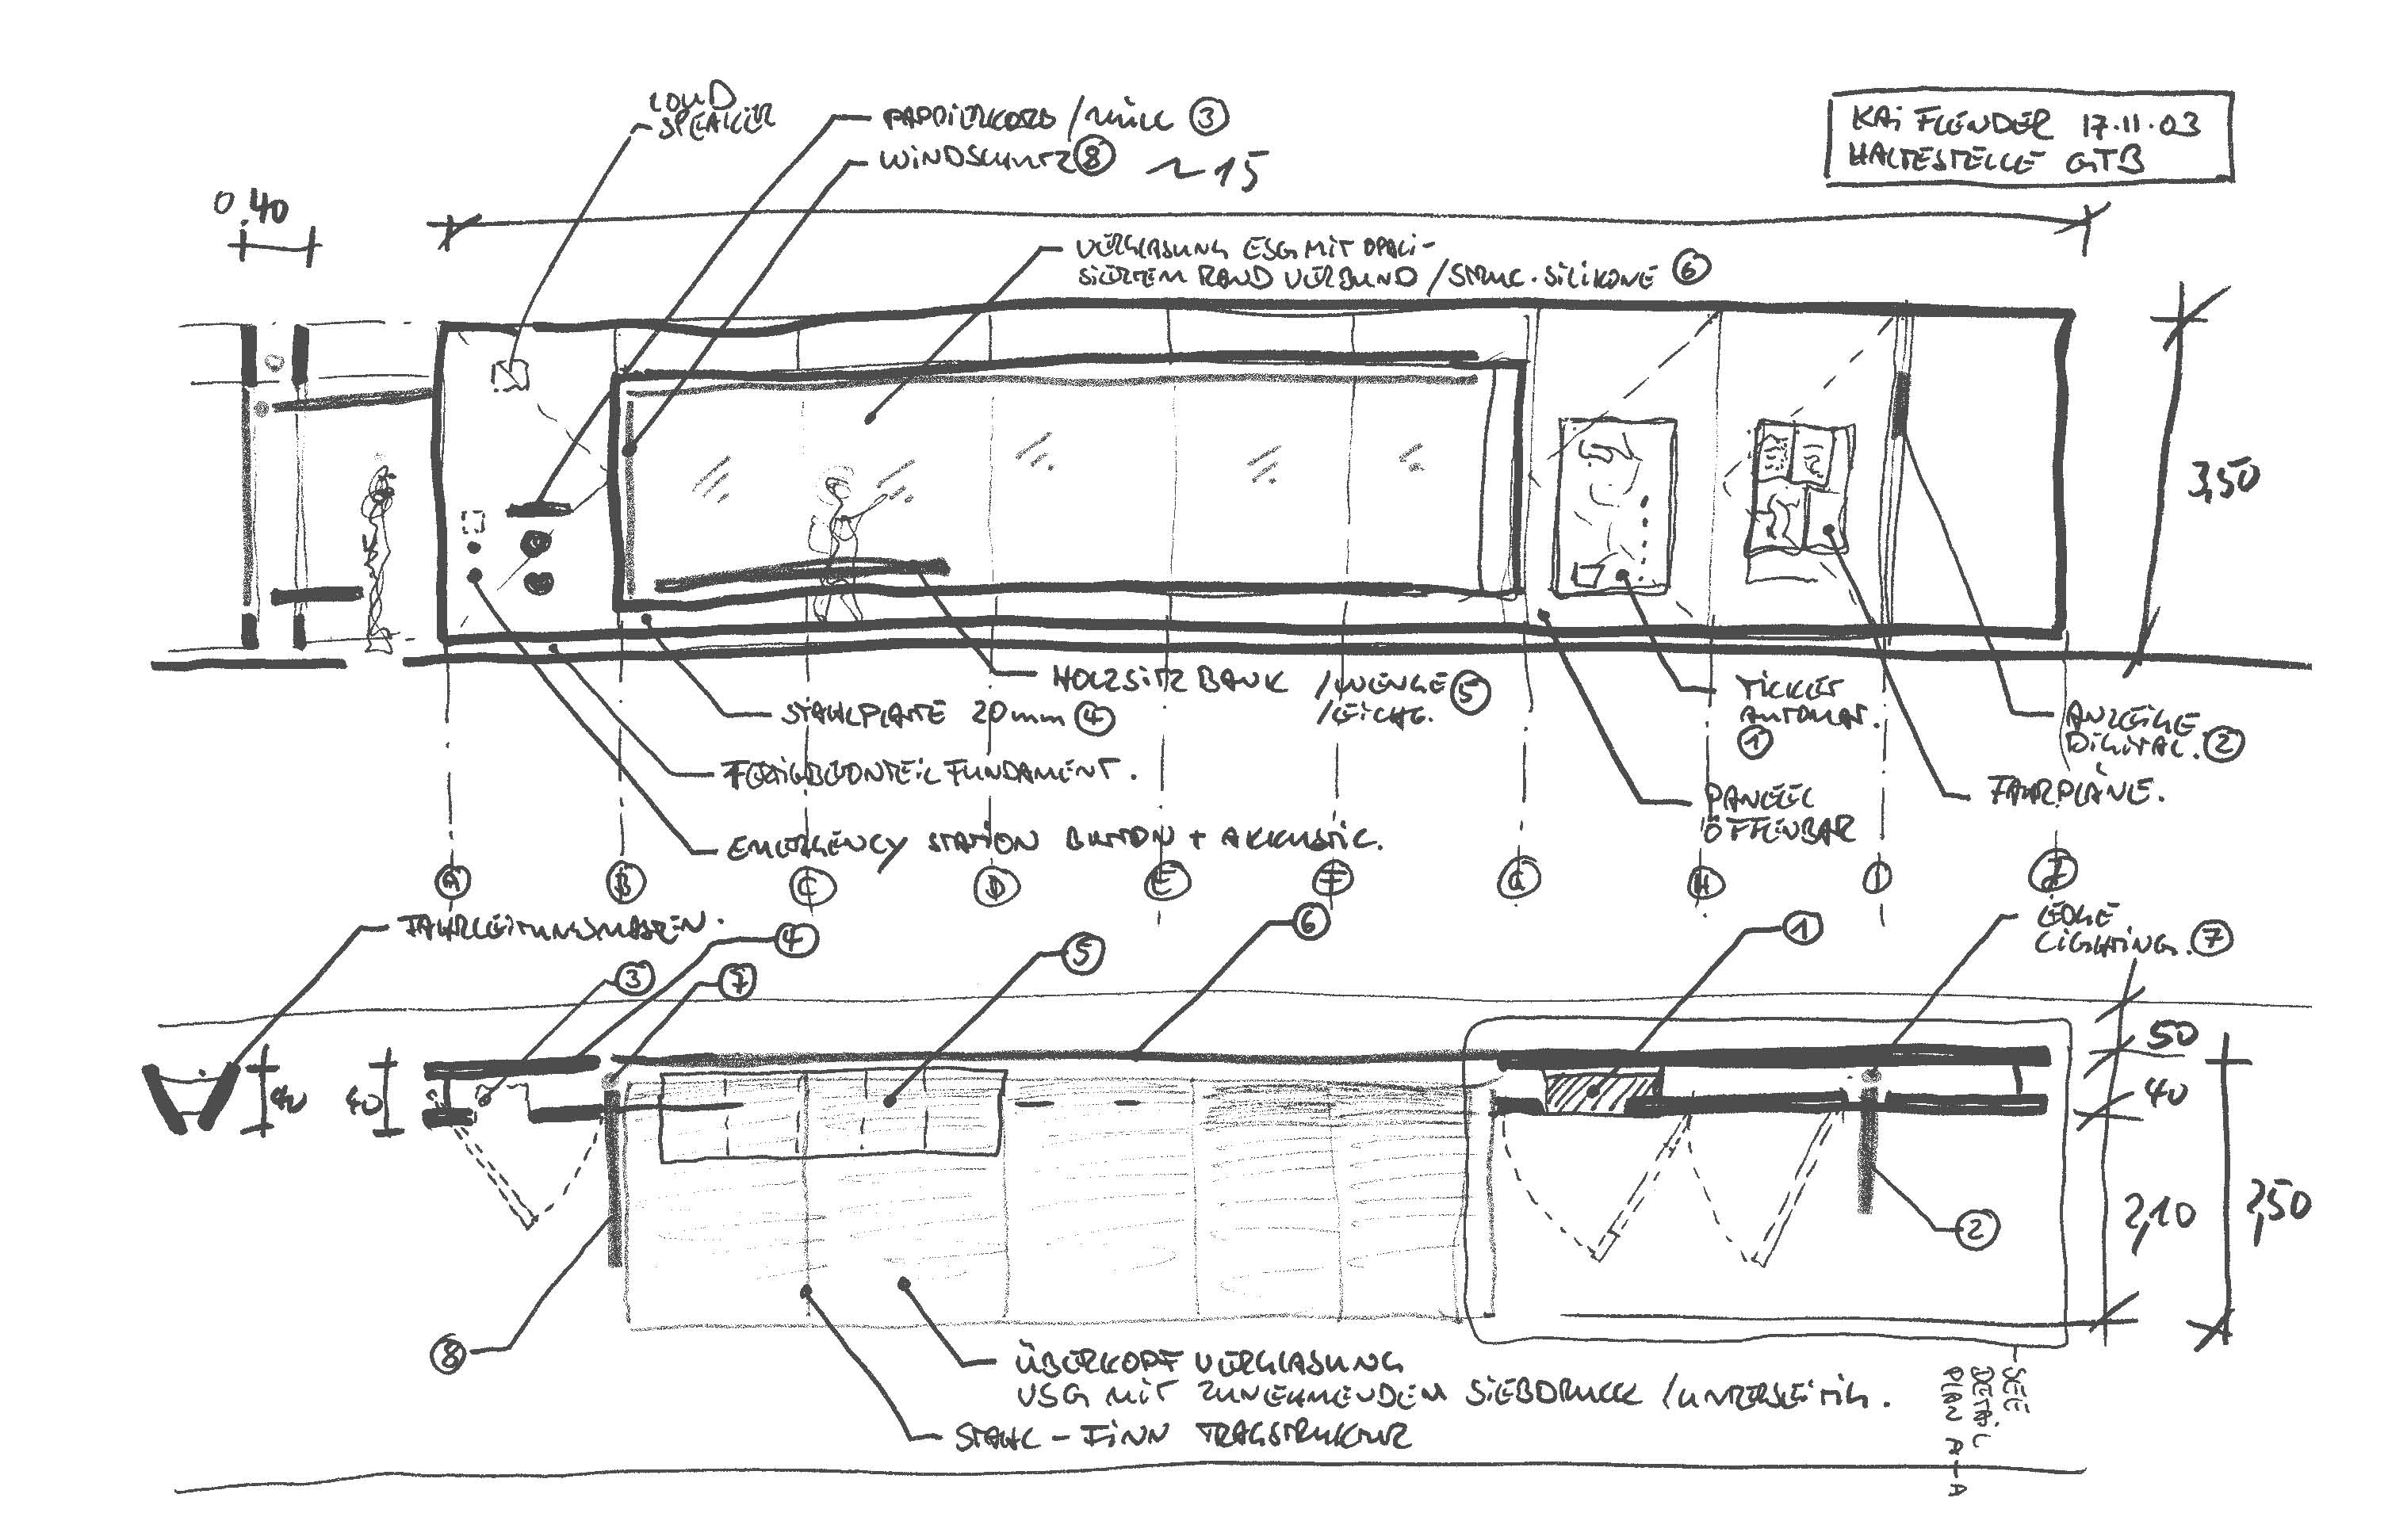 LOUD
SPEAKER
PAPPIERKORB / MÜLL ③
WINDSCHUTZ ⑧ ~15
KAI FLENDER 17.11.03
HALTESTELLE GTB
0,40
VERGLASUNG ESG MIT OPALI-
SIERTEM RAND VERBUND / STRUC. SILIKONE ⑥
3,50
HOLZSITZBANK / WENGE ⑤
/ LEICHG.
STAHLPLATTE 20mm ④
TICKET
AUTOMAT.
①
ANZEIGE
DIGITAL. ②
FERTIGBETONTEIL FUNDAMENT.
PANEEL
ÖFFENBAR
FAHRPLÄNE.
EMERGENCY STATION BUTTON + AKKUSTIC.
A B C D E F G H I J
FAHRLEITUNGSMASTEN.
④
③
⑦
⑤
⑥
①
EDGE
LIGHTING. ⑦
50
40
40
40
2,10
2,50
②
⑧
ÜBERKOPF VERGLASUNG
VSG MIT ZUNEHMENDEM SIEBDRUCK / UNTERSEITIG.
STAHL - FINN TRAGSTRUKTUR
SEE
DETAIL
PLAN A-A